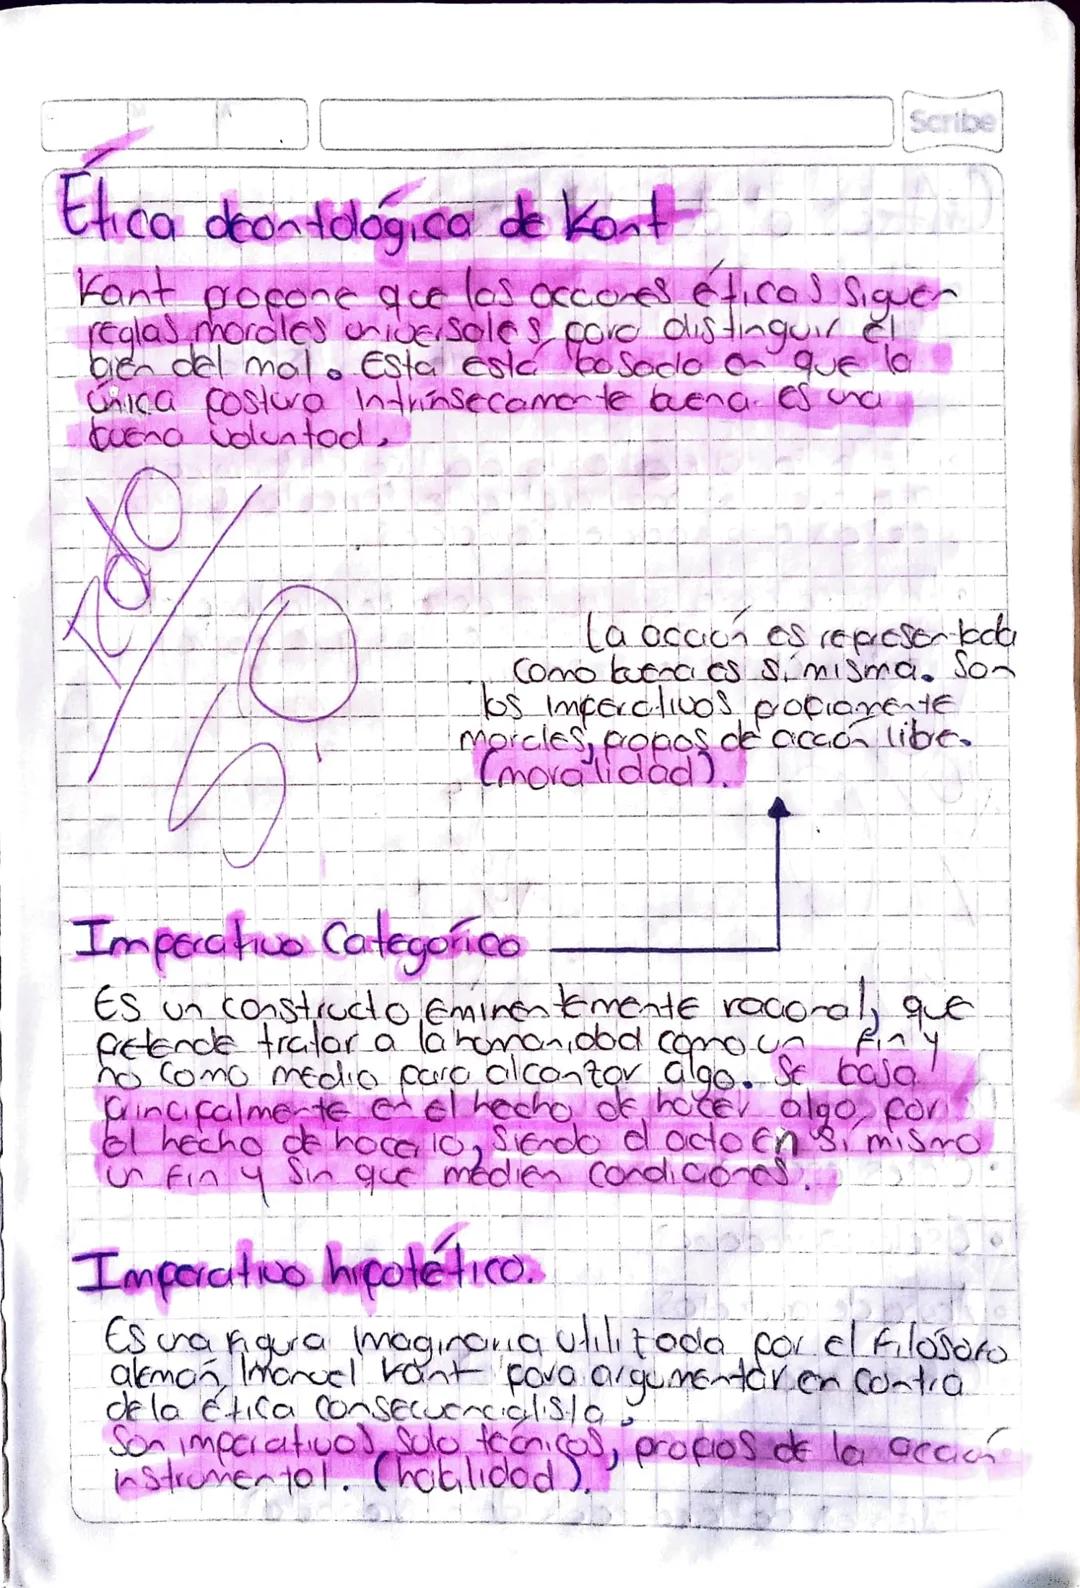 Scribe
Ética deontológica de Kant
Kant propone que las acciones éticas siguen
reglas morales universales para distinguir el
bien del mal. Esta está basada en que la
única postura intrínsecamente buena es una
buena voluntad.
Rdo
50
La acción es representada
como buena es sí misma. Son
los imperativos propiamente
morales, propos de acción libre.
(moralidad).
Imperativo Categórico
Es un constructo eminentemente racional, que
pretende tratar a la humanidad como un fin y
no como medio para alcanzar algo. Se basa
principalmente en el hecho de hacer algo por
el hecho de hacerlo, siendo el acto en sí mismo
un fin y sin que medien condiciones.
Imperativo hipotético.
Es una figura imaginaria utilizada por el filósofo
alemán Imanuel Kant para argumentar en contra
de la ética consecuencialista.
Son imperativos solo técnicos, propios de la acción
instrumental. (habilidad).